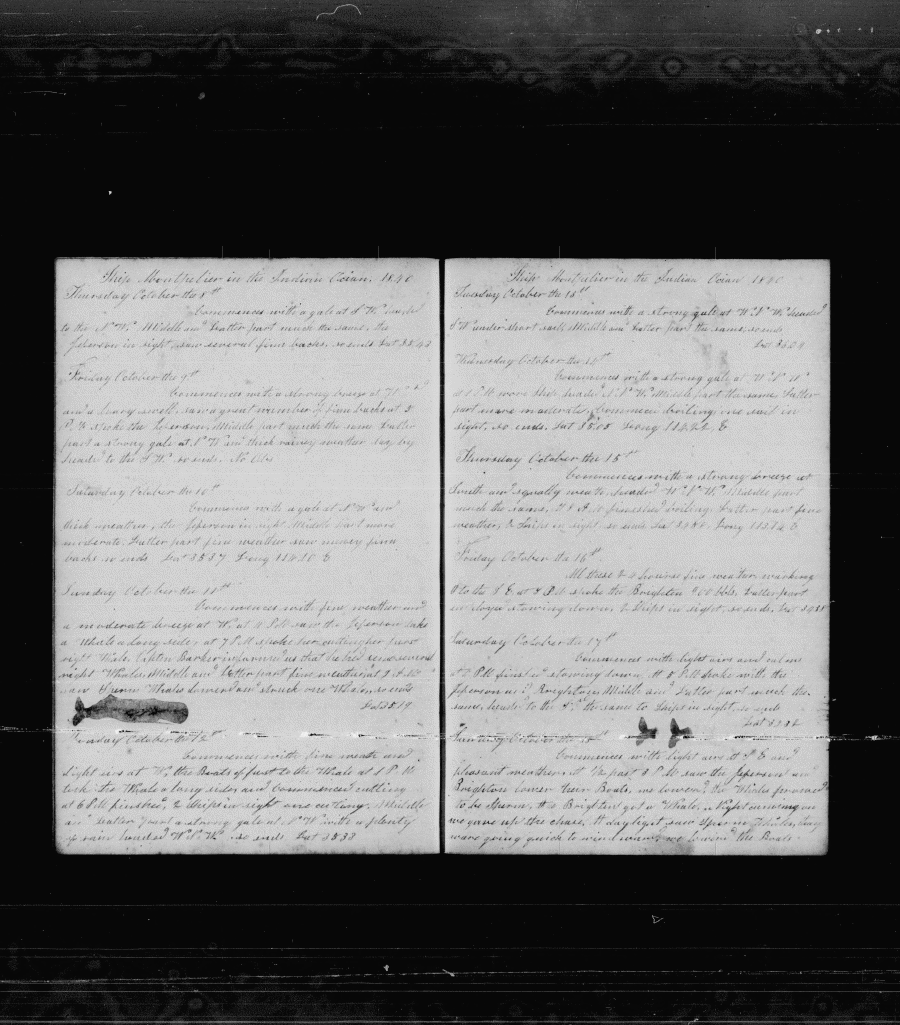 Ship Monthelier in the Indian Ocean. 1840
Thursday October the 8th
Commences with a gale at S W. heade
to the N W. Middle and Latter part much the same, the
Jeferson in sight, saw several fine backs, so ends Lat 35,43
Friday October the 9th
Commences with a strong breeze at
and a heavy swell, saw a great number of fine backs at 5
P.M. spoke the Jeferson, Middle part much the same Latter
part a strong gale at N W and thick rainey weather lay by
heade to the S W. so ends. No Obs
Saturday October the 10th
Commences with a gale at N W and
thick weather, the Jeferson in sight Middle Part more
moderate. Latter part fine weather saw meney fine
backs so ends Lat 35 37 Long 114.10 E
Sunday October the 11th
Commences with fine weather and
a moderate breeze at W. at 4 P.M. saw the Jeferson take
a Whale a long side, at 7 P.M. spoke her cuting her first
right Whale, Capten Barker informed us that he had seen several
right Whales, Middle and Latter part fine weather, at 9 A.M.
saw Sperm Whales Lowerd and struck one Whale, so ends
Lat 35 19
Monday October the 12th
Commences with fine weath and
Light airs at W, the Boats of fast to the Whale at 1 P.M
took the Whale a long side, and Commenced cutting
at 6 P.M. finished, 2 Ships in sight one cutting, Middle
and Latter part a strong gale at N W with a plenty
of rain headed W S W. so ends Lat 35 33
Ship Montpelier in the Indian Ocean 1840
Tuesday October the 13th
Commences with a strong gale at W.N.W. heade
S W under short sail, Middle and Latter part the same, so ends
Lat 35.09
Wednesday October the 14th
Commences with a strong gale at W.N.W
at 1 P.M. wore Ship heade N.N.W. Middle part the same, Latter
part more moderate, Commenced boiling, one sail in
sight, so ends. Lat 35.05 Long 114.22 E
Thursday October the 15th
Commences with a strong breeze at
South and squally weath, headed W.S.W. Middle part
much the same, at 8 A.M. finished boiling Latter part fine
weather, 2 Ships in sight so ends Lat Long 113.14 E
Friday October the 16th
All these 24 hours fine weather, working
to the S E. at 4 P.M. spoke the Brighten 900 bbls, Latter part
imployed stowing down, 2 Ships in sight, so ends. Lat
Saturday October the 17th
Commences with light airs and calms
at P.M. finised stowing down, At 5 P.M. spoke with the
Jeferson and Brighton, Middle and Latter part much the
same, heade to the the same to Ships in sight, so ends
Lat
Sunday October the 18th
Commences with light airs At S E and
pleasant weather, At ½ past 1 P.M. saw the Jeferson and
Brighton lower their Boats, we lowerd, the Whales proved
to be Sperm, the Brighten got a Whale, Night coming on
we gave up the chase, At daylight saw Sperm Whales, they
ware going quick to wind ward, we lowerd the Boats